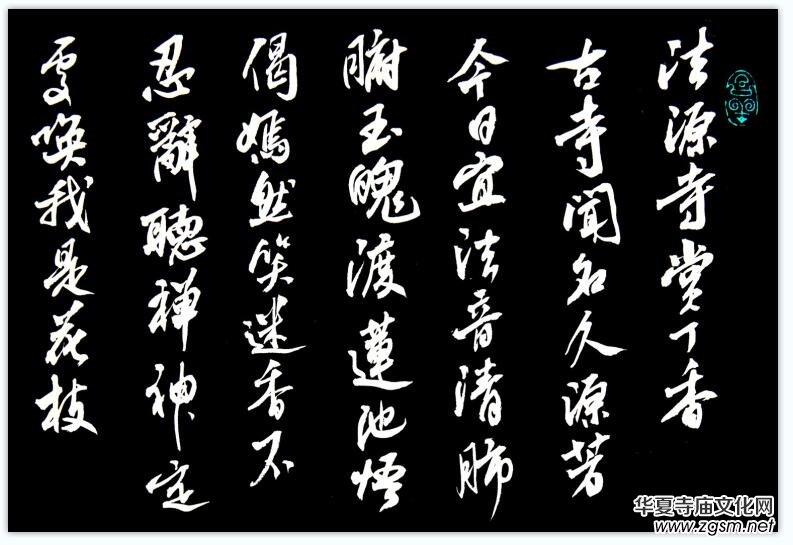 法源寺賞丁香
古寺聞名久源著
今日宜法音清肺
腑玉魄渡蓮池悟
偈嫣然笑迷香不
忍辭聽禪神定
處喚我是花枝
华夏寺庙文化网
www.zgsm.net